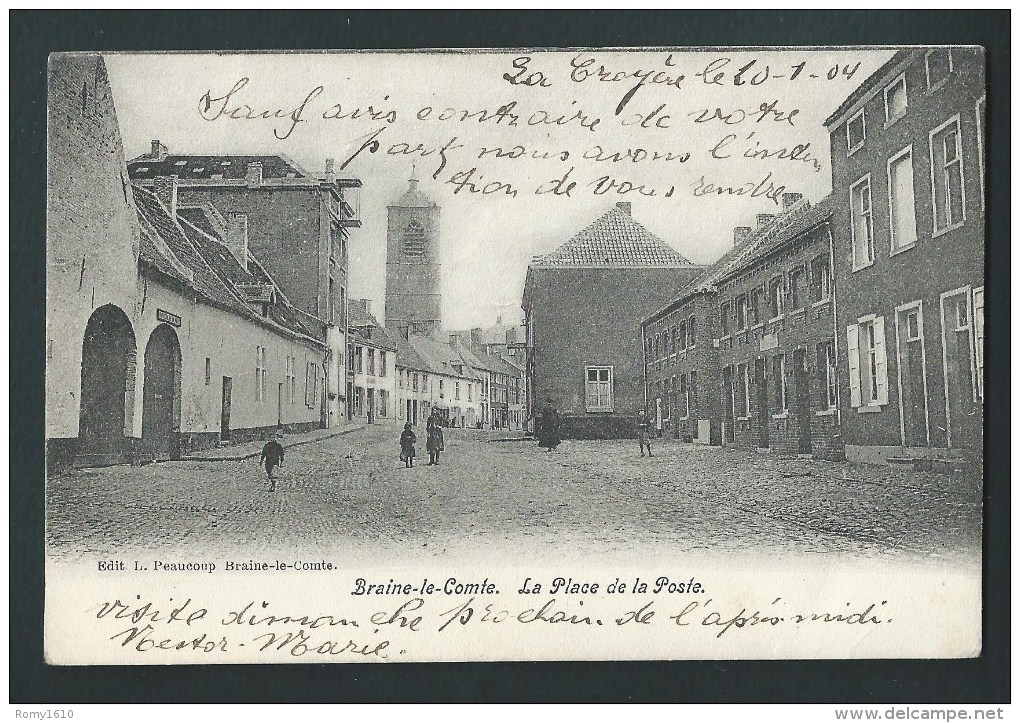 La Croyère le 20-1-04
Sauf avis contraire de votre
part nous avons l'inten
tion de vous rendre
Edit L. Peaucoup Braine-le-Comte.
Braine-le-Comte. La Place de la Poste.
visite dimanche prochain de l'après-midi.
Nestor-Marie.
Romy1610
www.delcampe.net